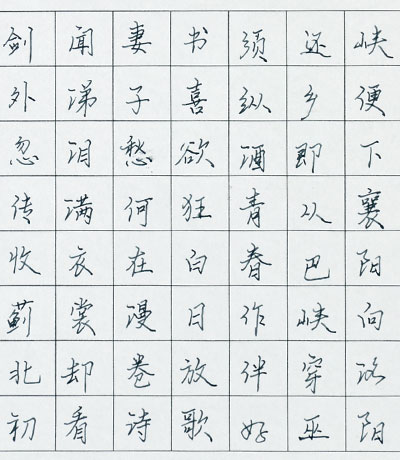 剑外忽传收蓟北初
闻涕泪满衣裳却看
妻子愁何在漫卷诗
书喜欲狂白日放歌
须纵酒青春作伴好
还乡即从巴峡穿巫
峡便下襄阳向洛阳